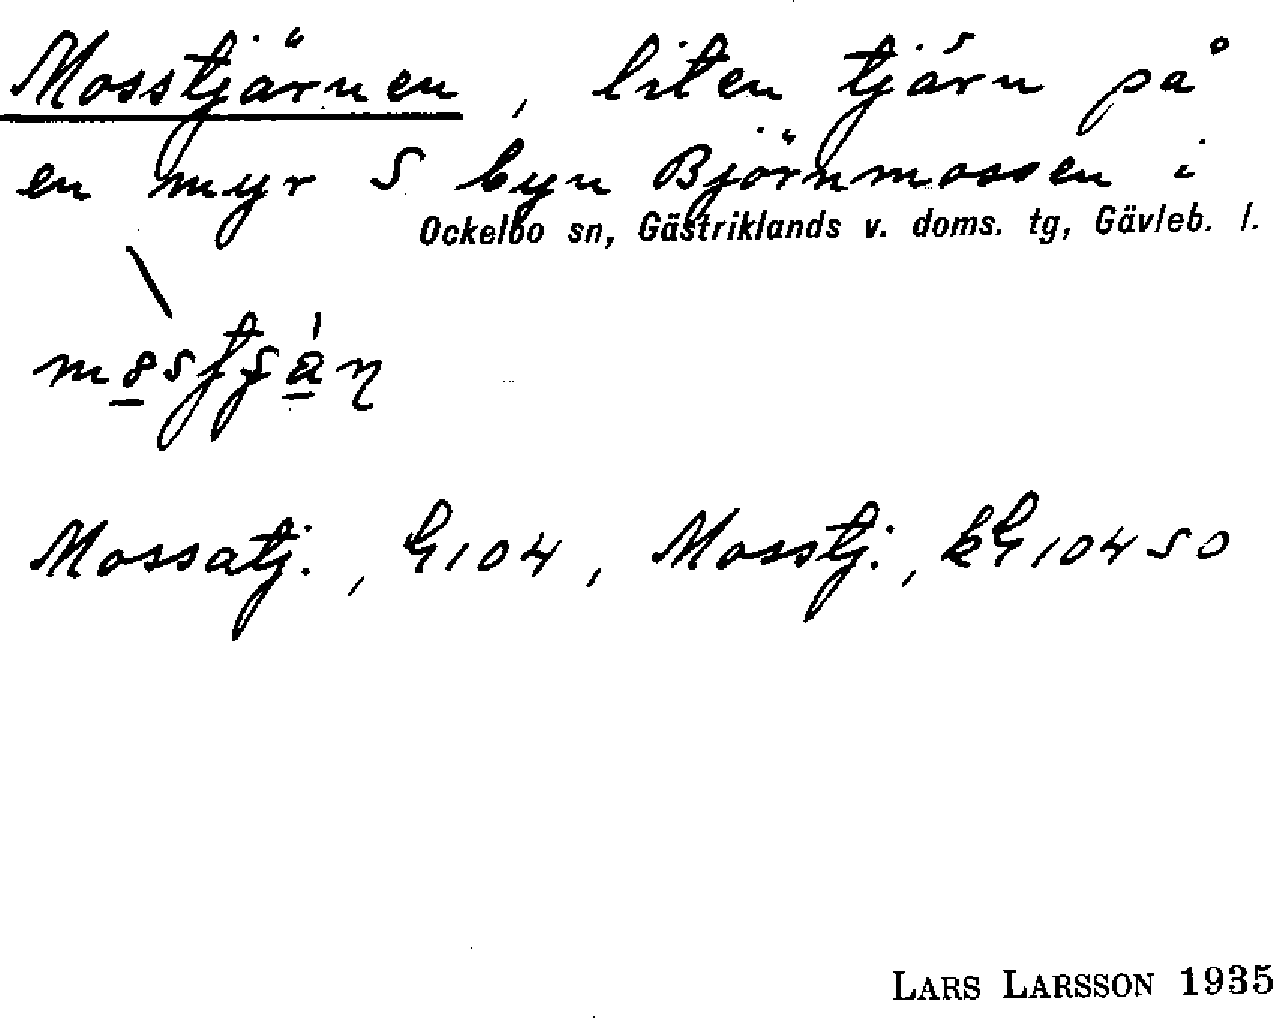 Mosstjärnen, liten tjärn på
en myr S byn Björnmossen i
Ockelbo sn, Gästriklands v. doms. tg, Gävleb. l.
Mossatj., G104, Mosstj., kG10450
LARS LARSSON 1935